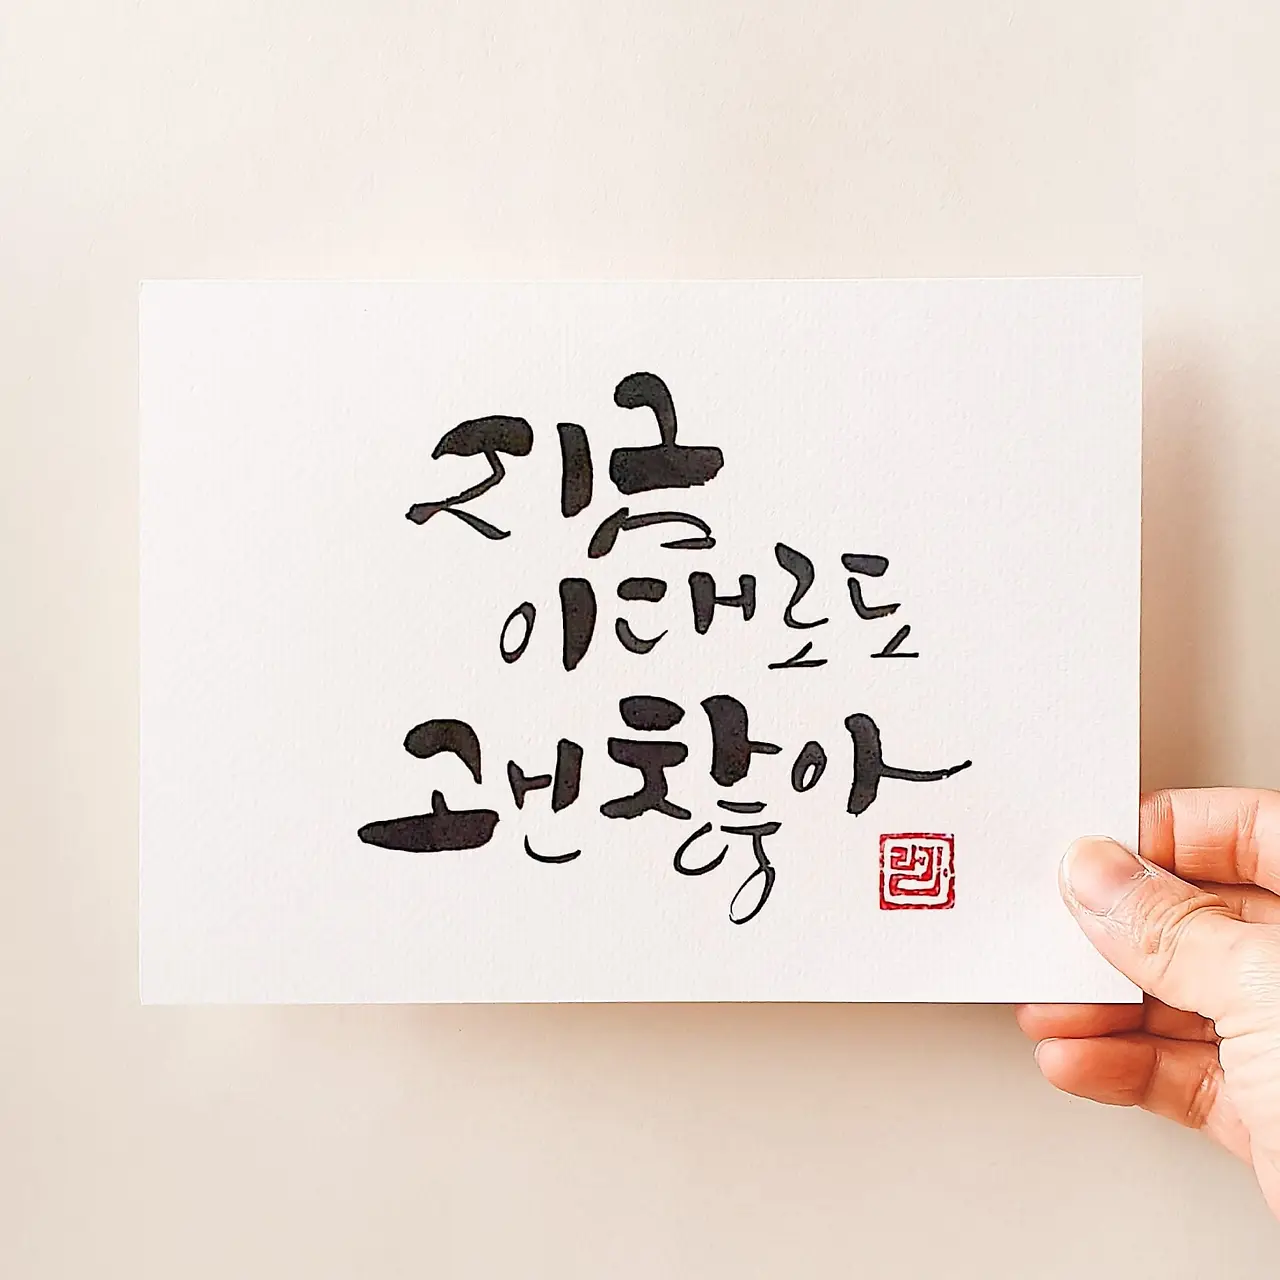 지금
이대로도
괜찮아